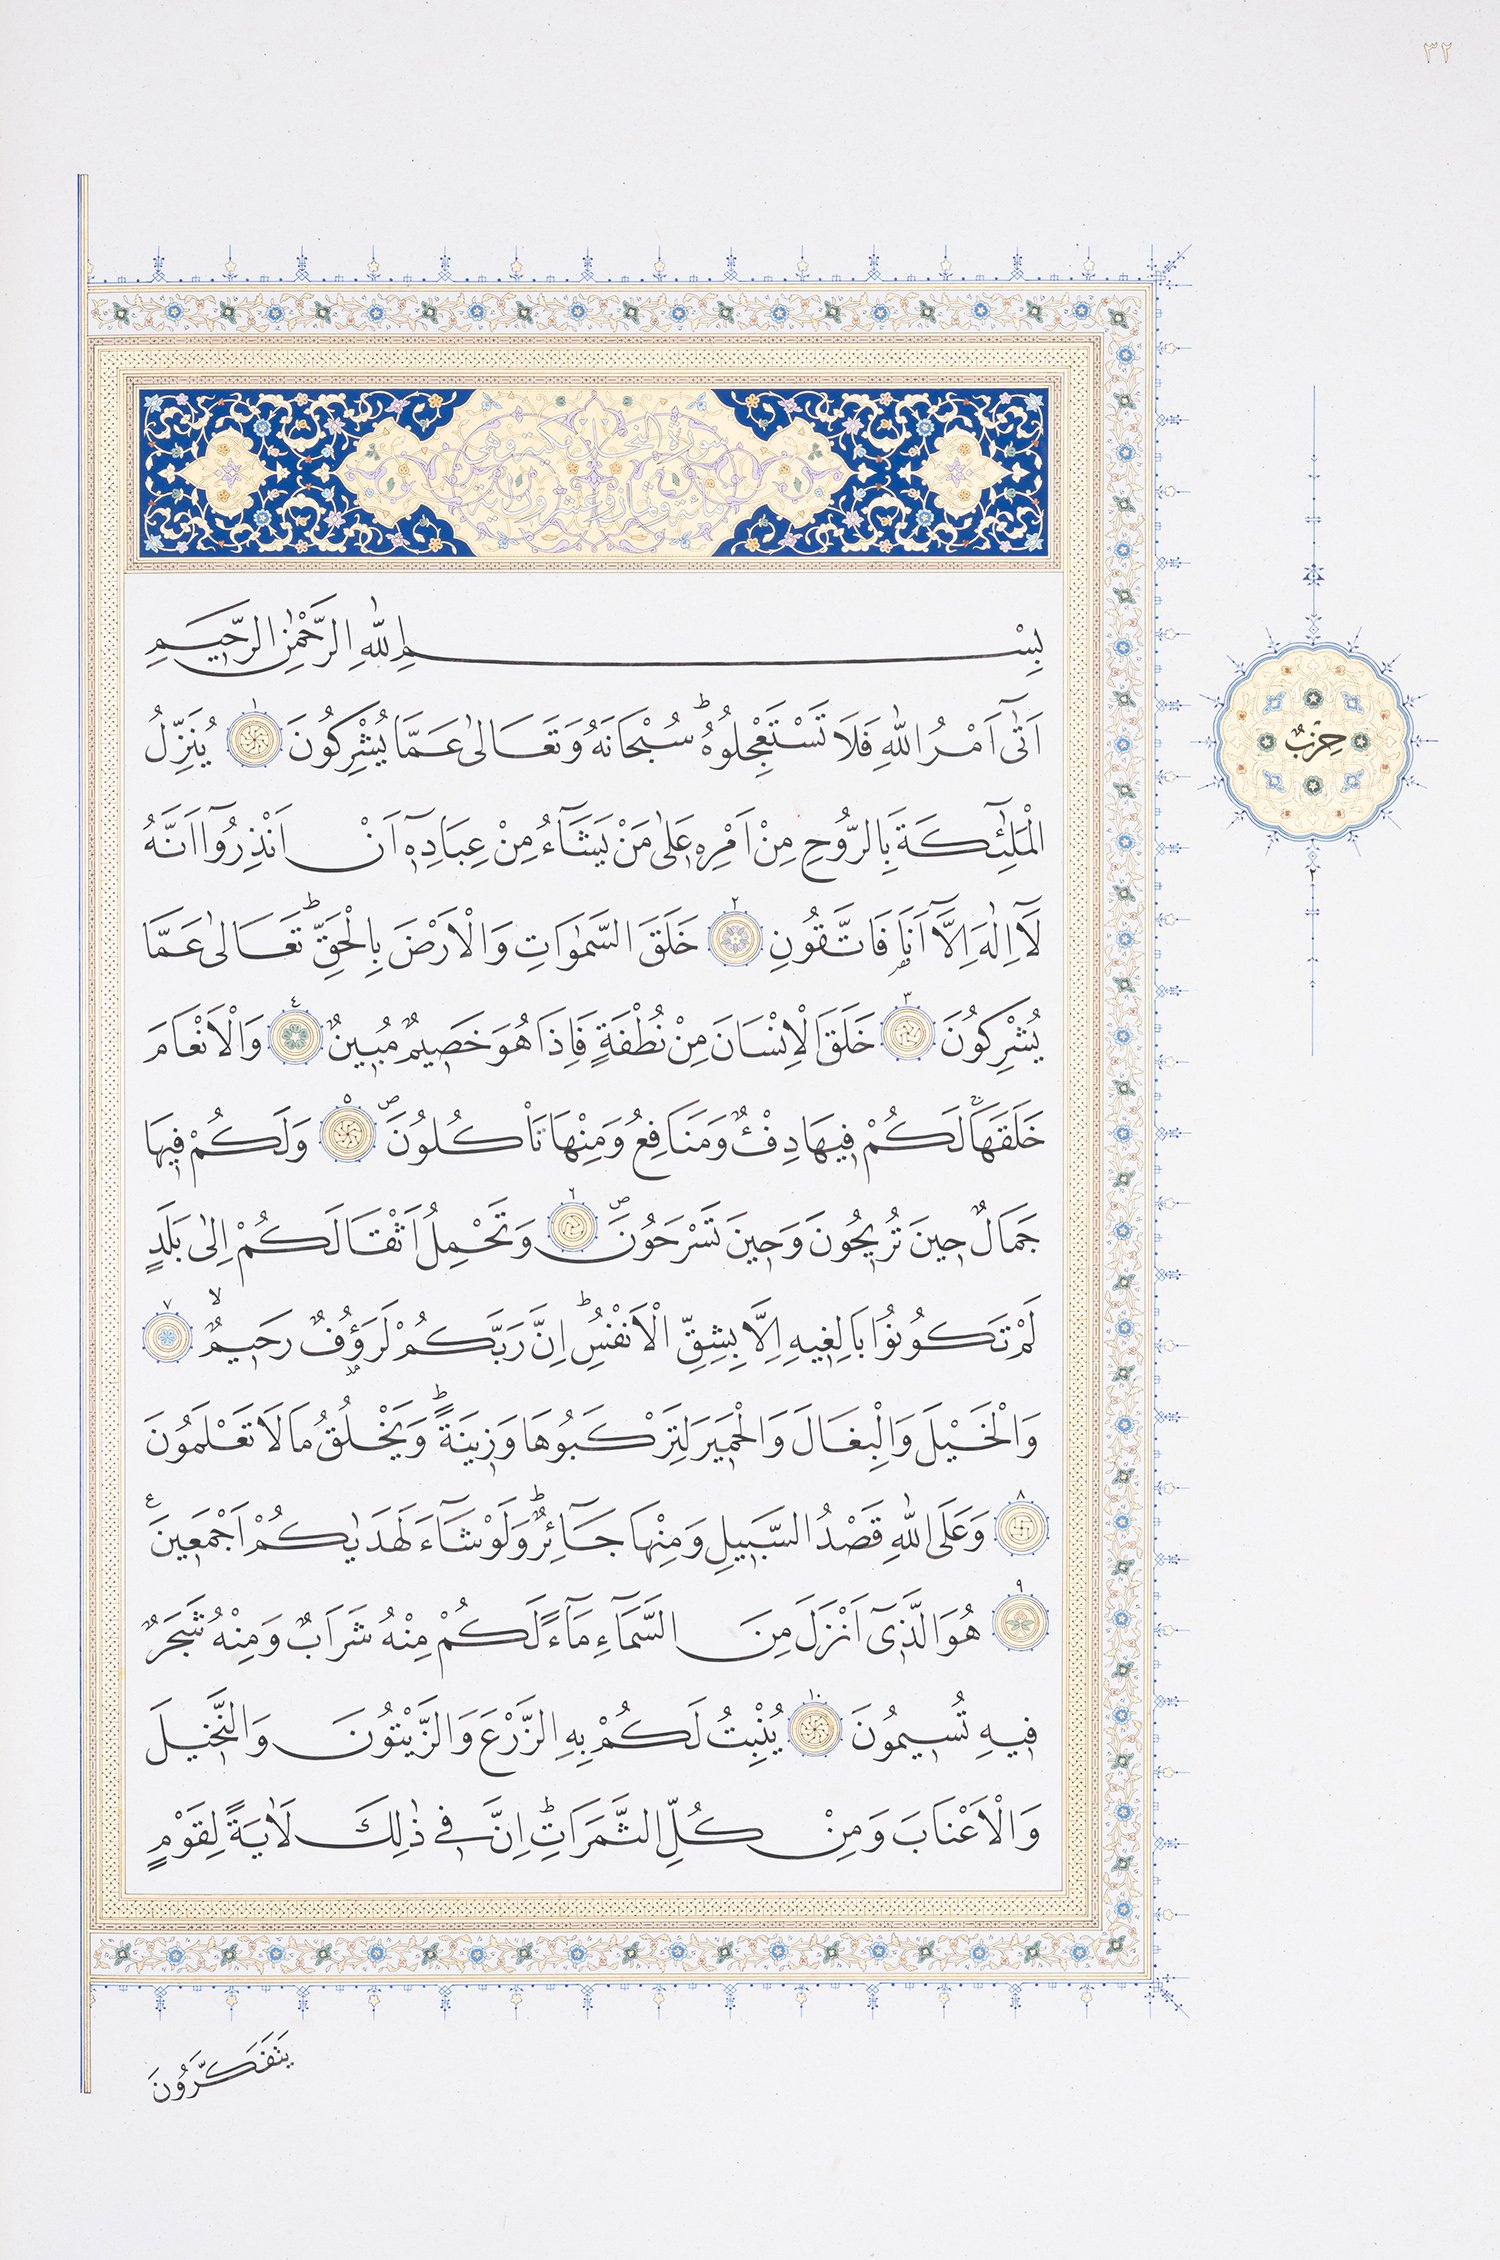 ٣٢
سورة النحل مكية وهي
مائة وثمان وعشرون اية
بِسْمِ اللّٰهِ الرَّحْمٰنِ الرَّحٖيمِ
اَتٰٓى اَمْرُ اللّٰهِ فَلَا تَسْتَعْجِلُوهُؕ سُبْحَانَهُ وَتَعَالٰى عَمَّا يُشْرِكُونَ ١ يُنَزِّلُ
الْمَلٰٓئِكَةَ بِالرُّوحِ مِنْ اَمْرِهٖ عَلٰى مَنْ يَشَٓاءُ مِنْ عِبَادِهٖٓ اَنْ اَنْذِرُٓوا اَنَّهُ
لَٓا اِلٰهَ اِلَّٓا اَنَا۬ فَاتَّقُونِ ٢ خَلَقَ السَّمٰوَاتِ وَالْاَرْضَ بِالْحَقِّؕ تَعَالٰى عَمَّا
يُشْرِكُونَ ٣ خَلَقَ الْاِنْسَانَ مِنْ نُطْفَةٍ فَاِذَا هُوَ خَصٖيمٌ مُبٖينٌ ٤ وَالْاَنْعَامَ
خَلَقَهَاۚ لَكُمْ فٖيهَا دِفْءٌ وَمَنَافِعُ وَمِنْهَا تَاْكُلُونَࣕ ٥ وَلَكُمْ فٖيهَا
جَمَالٌ حٖينَ تُرٖيحُونَ وَحٖينَ تَسْرَحُونَࣕ ٦ وَتَحْمِلُ اَثْقَالَكُمْ اِلٰى بَلَدٍ
لَمْ تَكُونُوا بَالِغٖيهِ اِلَّا بِشِقِّ الْاَنْفُسِؕ اِنَّ رَبَّكُمْ لَرَؤُ۫فٌ رَحٖيمٌۙ ٧
وَالْخَيْلَ وَالْبِغَالَ وَالْحَمٖيرَ لِتَرْكَبُوهَا وَزٖينَةًؕ وَيَخْلُقُ مَا لَا تَعْلَمُونَ
٨ وَعَلَى اللّٰهِ قَصْدُ السَّبٖيلِ وَمِنْهَا جَٓائِرٌؕ وَلَوْ شَٓاءَ لَهَدٰيكُمْ اَجْمَعٖينَࣖ
٩ هُوَ الَّذٖٓى اَنْزَلَ مِنَ السَّمَٓاءِ مَٓاءً لَكُمْ مِنْهُ شَرَابٌ وَمِنْهُ شَجَرٌ
فٖيهِ تُسٖيمُونَ ١٠ يُنْبِتُ لَكُمْ بِهِ الزَّرْعَ وَالزَّيْتُونَ وَالنَّخٖيلَ
وَالْاَعْنَابَ وَمِنْ كُلِّ الثَّمَرَاتِؕ اِنَّ فٖى ذٰلِكَ لَاٰيَةً لِقَوْمٍ
يَتَفَكَّرُونَ
حِزْبٌ
٢